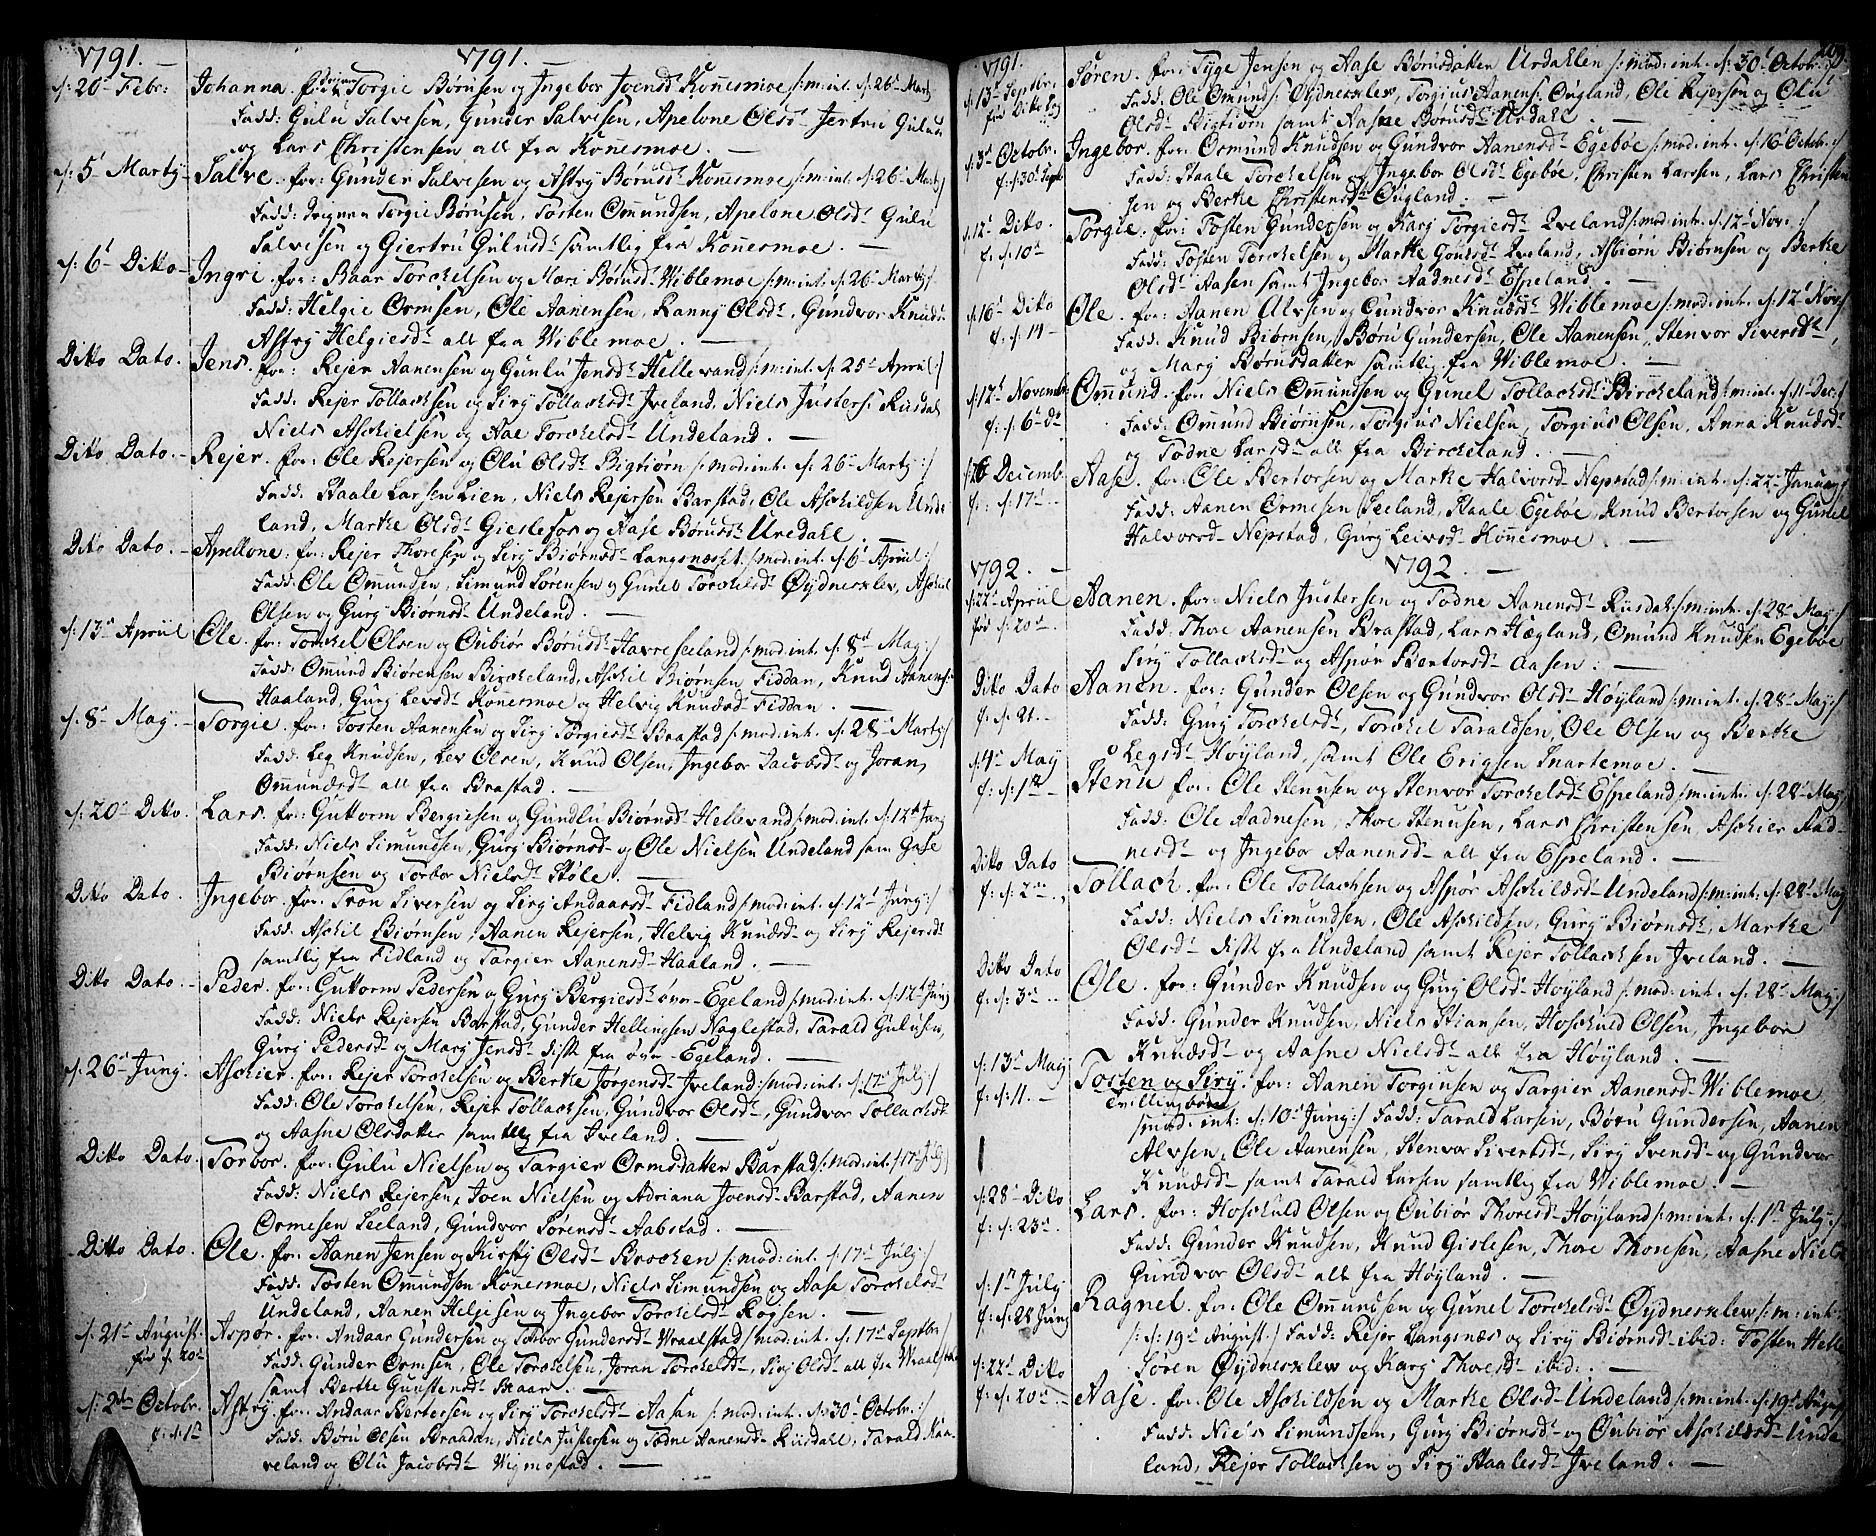 1791. 1791.
d: 20d Febr: Johanna. for: Torgie Børusen og Ingebor Joensd: Konesmoe /: m: int. d: 26d Martÿ
Fadd: Gulu Salvesen, Gunder Salvesen, Apelone Olsd: Jertru Gulusd
og Lars Christensen all fra Konesmoe. —
d: 5t Martÿ Salve. for: Gunder Salvesen og Astrÿ Børusd: Konesmoe /: m: int. d: 26d Martÿ
Fadd: Torgie Børusen, Tosten Omundsen, Apelone Olsd: Gulu
Salvesen og Giertru Gulusd: samtlig fra Konesmoe. —
d: 6t Ditto Ingri. for: Baar Torckelsen og Mari Børusd: Wiblemoe /: m: int. d: 26d Martÿ :/
Fadd: Helgie Ormsen, Ole Aanensen, Ranny Olsd:, Gundvor Knuds
Astrÿ Helgiesd: all fra Wiblemoe. —
Ditto Dato. Jens. for: Rejer Aanensen og Gunlu Jensd: Hellevand /: m: int. d: 25d Apriil :/
Fadd: Rejer Tollachsen og Sirÿ Tollachsd: Iveland, Niels Justers: Rusdal
Niels Aschielsen og Aae Torckelsd: Undeland. —
Ditto Dato. Rejer. for: Ole Rejersen og Olu Olsd: Bigtiørn /: mod: int. d: 26d Martÿ :/
Fadd: Staale Larsen Lien, Niels Rejersen Barstad, Ole Aschildsen Unde
land, Marthe Olsd: Gieslefos og Aase Børusd: Uredahl. —
Ditto Dato. Apellone. for: Rejer Thoresen og Sirÿ Biørnsd: Langsnæsset /: mod: int. d: 6t Apriil :/
Fadd: Ole Omundsen, Simund Sørensen og Gunel Torckelsd: Øydnesklev, Aschiel
Olsen og Gurÿ Biørnsd: Undeland. —
d: 13d Apriil Ole. for: Torckel Olsen og Oubiør Børusd: Havreseeland /: mod: int. d: 8d Maÿ :/
Fadd: Omund Biørensen Birckeland, Aschil Biørnsen Fiddan, Knud Aanens:
Haaland, Gurÿ Levsd: Konnesmoe og Helvig Knudsd: Fiddan. —
d: 8d Maÿ. Torgie. for: Tosten Aanensen og Sirÿ Torgiesd: Brastad /: mod: int. d: 28d Martÿ :/
Fadd: Leg Knudsen, Lev Olsen, Knud Olsen, Ingebor Jacobsd: og Joran
Ommundsd: all fra Brastad. —
d: 20d Ditto. Lars. for: Guttorm Bergiesen og Gundlu Biørnsd: Hellevand /: mod: int. d: 12t Junÿ
Fadd: Niels Simundsen, Gurÿ Biørnsd: og Ole Nielsen Undeland sam Gase
Biørnsen og Torbor Nielsd: Støle. —
Ditto Dato. Ingebor. for: Tron Siversen og Sirÿ Andaarsd: Fidland /: mod: int. d: 12t Junÿ :/
Fadd: Aschil Biørnsen, Aanen Rejersen, Helvig Knudsd: og Sirÿ Rejersd:
samtlig fra Fidland og Targier Aanensd: Haaland. —
Ditto Dato. Peder. for: Guttorm Pedersen og Gurÿ Bergiesd: Øvre-Egeland /: mod: int. d: 12t Junÿ
Fadd: Niels Rejersen Barstad, Gunder Hellingsen Naglestad, Tarald Gulusen,
Gurÿ Pedersd: og Marÿ Jensd: disse fra Øvre-Egeland. —
d: 26d Junÿ. Aschier. for: Rejer Torckelsen og Berthe Jørgensd: Iveland /: mod: int. d: 17d Julÿ :/
Fadd: Ole Torckelsen, Rejer Tollachsen, Gundvor Olsd:, Gundvor Tollachsd:
og Aasne Olsdatter samtlig fra Iveland. —
Ditto Dato. Torbor. for: Gulu Nielsen og Targier Ormsdatter Barstad /: mod: int. 17d Julÿ
Fadd: Niels Rejersen, Joen Nielsen og Adriana Joensd: Barstad, Aanen
Ormesen Seeland, Gundvor Sørensd: Aabstad. —
Ditto Dato. Ole. for: Aanen Jensen og Kirstÿ Olsd: Brochen /: mod: int. d: 17d Julÿ :/
Fadd: Tosten Omundsen Konesmoe, Niels Simundsen og Aase Torckelsd:
Undeland, Aanen Helgesen og Ingebor Torckelsd: Rojsen. —
d: 21d August. Aspør. for: Andaar Gundersen og Torbor Gundersd: Wraalstad /: mod: int. d: 17d Septbr:
Fadd: Gunder Ormsen, Ole Torckelsen, Joran Torckelsd:, Sirÿ Olsd: all fra Wraalstad
samt Berthe Gunstensd: Baar. —
d: 2d Octobr. Astrÿ. for: Andaar Bertersen og Sirÿ Torckelsd: Aasan /: mod: int. d: 30d Octobr. :/
f: d: 1d Fadd: Børu Olsen Braadan, Niels Justersen og Todne Aanensd: Rusdahl, Tarald Haa
veland og Olu Jacobsd: Wemestad. —
1791.
d: 13d Septbr. Søren. for: Tÿge Jensen og Aase Børusdatter Urdahlen /: mod: int. d: 30d Octobr. :/
Fadd: Ole Omunds: Øydnesklev, Torgius Aanens: Ougland, Ole Rejersen og Olu
Olsd: Bigtiørn samt Aasne Børusd: Urdahl. —
d: 3d Octobr. Ingebor. for: Osmund Knudsen og Gundvor Aanensd: Egebøe /: mod: int. d: 16d Octobr. :/
f: d: 30d Septb Fadd: Staale Torckelsen og Ingebor Olsd: Egebøe, Christen Larsen, Lars Christen
sen og Berthe Christensd: Ougland. —
d: 12d Ditto. Torgie. for: Tosten Gundersen og Karÿ Torgiesd: Qveland /: mod: int. d: 12d Nov: :/
f: d: 10d Fadd: Tosten Torckelsen og Marthe Gouksd: Qveland, Asbiørn Biørnsen og Berthe
Olsd: Aasen samt Ingebor Aadnesd: Espeland. —
d: 16d Ditto Ole. for: Aanen Alvsen og Gundvor Knudsd: Wiblemoe /: mod: int. d: 12d Nov:
f: d: 14 Fadd: Knud Biørnsen, Børu Gundersen, Ole Aanensen, Stenvor Siversd:,
og Marÿ Børusdatter samtlig fra Wiblemoe. —
d: 12d Novembr Omund. for: Niels Omundsen og Gunel Tollachsd: Birckeland /: m: int. d: 11d Dec: :/
f: d: 6d do Fadd: Omund Biørnsen, Torgius Nielsen, Torgius Olsen, Anna Knudsd:
og Todne Larsd: all fra Birckeland. —
Decembr Aase. for: Ole Bertorsen og Marthe Halvorsd: Nepstad /: m: int. d: 22d Januarÿ
f: d: 17d Fadd: Aanen Ormesen Seeland, Staale Egeboe, Knud Bertorsen og Gunel
Halvorsd: Nepstad, Gurÿ Leivsd: Konnesmoe. —
1792. 1792. —
d: 22d Apriil Aanen. for: Niels Justersen og Todne Aanensd: Rusdal /: m: int. d: 28d Maÿ :/
fød d: 20d Fadd: Thore Aanensen Brastad, Lars Hægland, Omund Knudsen Egeboe
Sirÿ Tollachsd: og Aspør Bertorsd: Aasen. —
Ditto Dato Aanen. for: Gunder Olsen og Gundvor Olsd: Høÿland /: m: int. d: 28d Maÿ :/
f: d: 21. Fadd: Gurÿ Torckelsd:, Torckel Taraldsen, Ole Olsen og Berthe
Legsd: Høÿland, samt Ole Erigsen Snartemoe. —
d: 4d Maÿ Stenu. for: Ole Stenusen og Stenvor Torckelsd: Espeland /: m: int. d: 28d Maÿ
f: d: 1d Fadd: Ole Aadnesen, Thore Stenusen, Lars Christensen, Aschier Aad-
nesd: og Ingebor Aanensd: all fra Espeland. —
Ditto Dato Tollach. for: Ole Tollachsen og Aspør Aschildsd: Undeland /: m: int. d: 28d Maÿ
f: d: 2d Fadd: Niels Simundsen, Ole Aschildsen, Gurÿ Biørnsd:, Marthe
Olsd: disse fra Undeland samt Rejer Tollachsen Iveland. —
Ditto Dato Ole. for: Gunder Knudsen og Gurÿ Olsd: Høÿland /: mod: int. d: 28d Maÿ :/
f: d: 3d Fadd: Gunder Knudsen, Niels Stiansen, Hoskuld Olsen, Ingebor
Knudsd: og Aasne Nielsd: all fra Høÿland. —
d: 13d Maÿ Tosten og Sirÿ. for: Aanen Torgiusen og Targier Aanensd: Wiblemoe
f: d: 11. Tvillingbørn
/: mod. int: d: 10d Junÿ :/ Fadd: Tarald Larsen, Børu Gundersen, Aanen
Alvsen, Ole Aanensen, Stenvor Sivertsd:, Sirÿ Svensd: og Gundvor
Knudsd: samt Tarald Larsen samtlig fra Wiblemoe. —
d: 28d Ditto Lars. for: Hoskuld Olsen og Oubiør Thoresd: Høÿland /: m: int. d: 1d Julÿ :/
f: d: 23d Fadd: Gunder Knudsen, Knud Gislesen, Thore Thoresen, Aasne Niels
Gundvor Olsd: all fra Høÿland. —
d: 1d Julÿ Ragnel. for: Ole Omundsen og Gunel Torckelsd: Øydnesklev /: m: int:
f: d: 24 Junÿ /: d: 19d August. :/ Fadd: Rejer Langsnæs og Sirÿ Biørnsd: ibid: Tosten Helle
Søren Øydnesklev og Karÿ Thoresd: ibid: —
d: 22d Ditto Aase. for: Ole Aschildsen og Marthe Olsd: Undeland /: mod: int. d: 19d August
f: d: 20d Fadd: Niels Simundsen, Gurÿ Biørnsd: og Oubiør Aschildsd: Unde
land, Rejer Tollachsen og Sirÿ Staalesd: Iveland. —